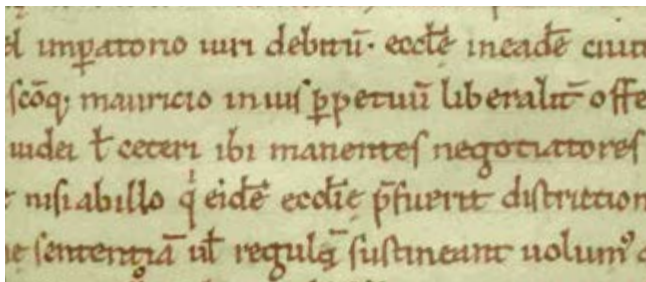 el imꝑatorio iuri debitū· eccłe in eadē ciuit
scōq; mauricio in ius ꝑpetuū liberalit̄ offe
iudei ł ceteri ibi manentes negotiatores
nisi ab illo qͥ eidē eccłie p̄fuerit distriction
sententiā uł regulā sustineant uolumꝰ